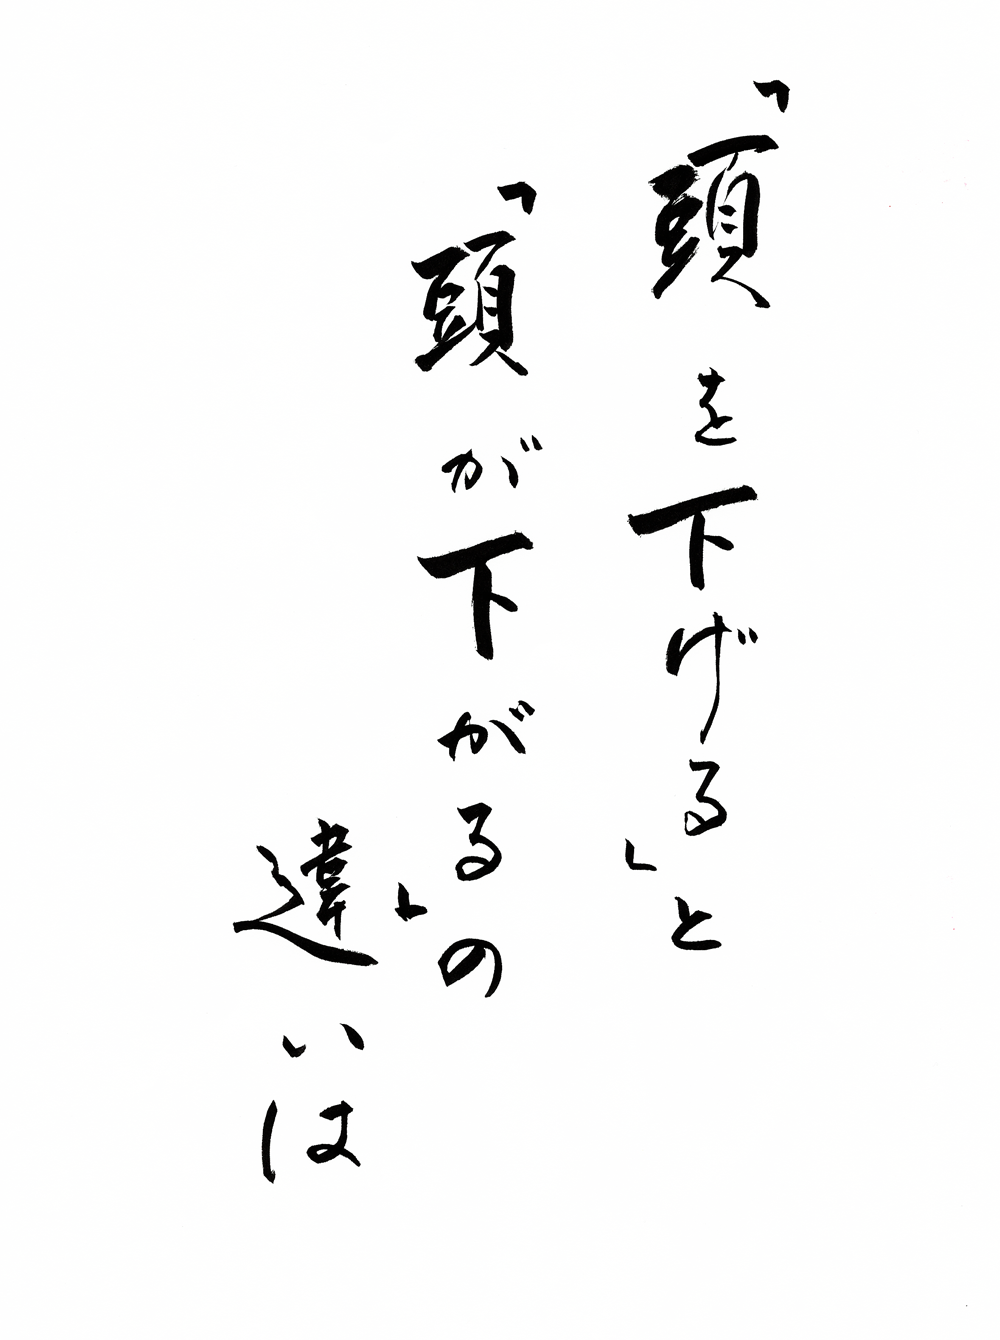 「頭を下げる」と
「頭が下がる」の
違いは